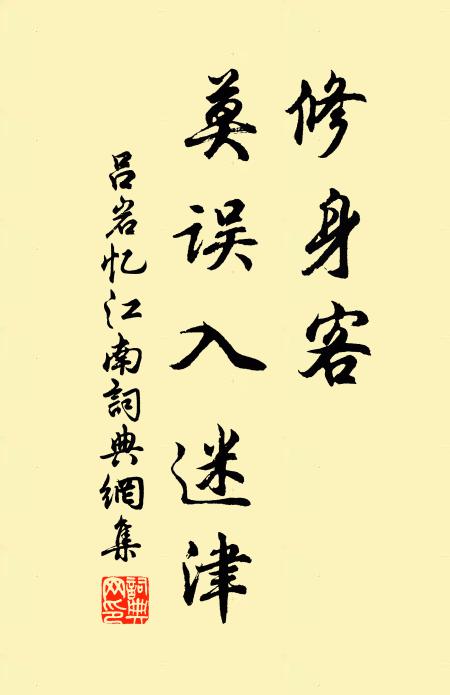 修身客
莫误入迷津
吕岩忆江南詞典網集
詞典网印